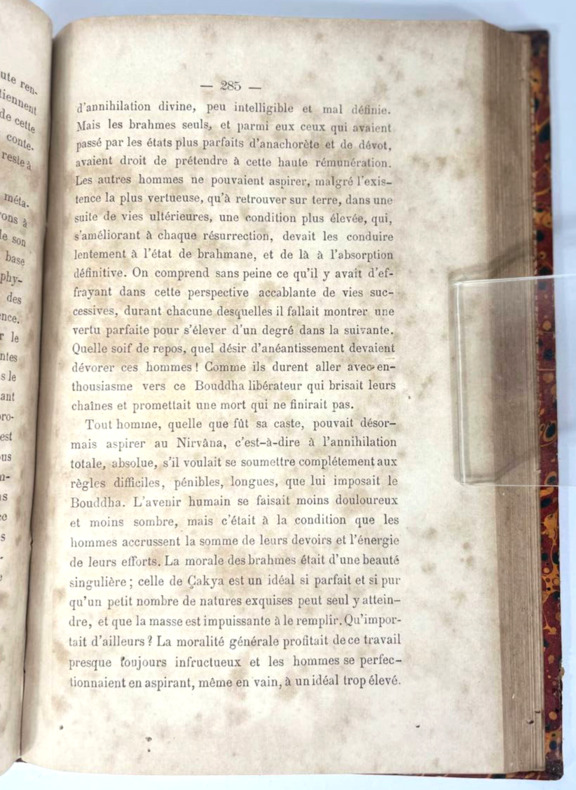 — 285 —
d'annihilation divine, peu intelligible et mal définie.
Mais les brahmes seuls, et parmi eux ceux qui avaient
passé par les états plus parfaits d'anachorète et de dévot,
avaient droit de prétendre à cette haute rémunération.
Les autres hommes ne pouvaient aspirer, malgré l'exis-
tence la plus vertueuse, qu'à retrouver sur terre, dans une
suite de vies ultérieures, une condition plus élevée, qui,
s'améliorant à chaque résurrection, devait les conduire
lentement à l'état de brahmane, et de là à l'absorption
définitive. On comprend sans peine ce qu'il y avait d'ef-
frayant dans cette perspective accablante de vies suc-
cessives, durant chacune desquelles il fallait montrer une
vertu parfaite pour s'élever d'un degré dans la suivante.
Quelle soif de repos, quel désir d'anéantissement devaient
dévorer ces hommes ! Comme ils durent aller avec en-
thousiasme vers ce Bouddha libérateur qui brisait leurs
chaînes et promettait une mort qui ne finirait pas.
Tout homme, quelle que fût sa caste, pouvait désor-
mais aspirer au Nirvâna, c'est-à-dire à l'annihilation
totale, absolue, s'il voulait se soumettre complétement aux
règles difficiles, pénibles, longues, que lui imposait le
Bouddha. L'avenir humain se faisait moins douloureux
et moins sombre, mais c'était à la condition que les
hommes accrussent la somme de leurs devoirs et l'énergie
de leurs efforts. La morale des brahmes était d'une beauté
singulière ; celle de Çakya est un idéal si parfait et si pur
qu'un petit nombre de natures exquises peut seul y attein-
dre, et que la masse est impuissante à le remplir. Qu'impor-
tait d'ailleurs ? La moralité générale profitait de ce travail
presque toujours infructueux et les hommes se perfec-
tionnaient en aspirant, même en vain, à un idéal trop élevé.